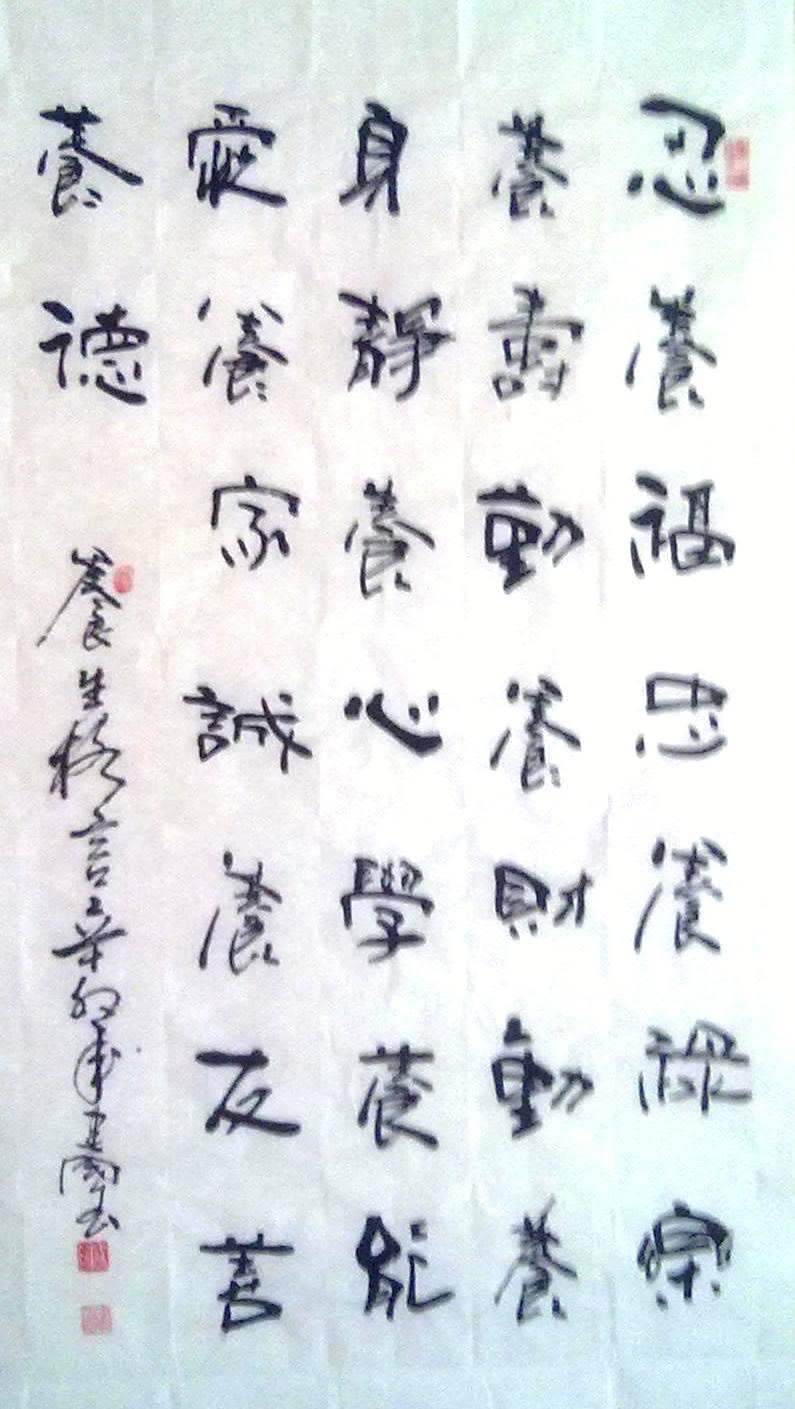 忍養福忠養禄宗
養壽勤養財動養
身靜養心學養能
愛養家誠養友善
養德
養生格言
國玉